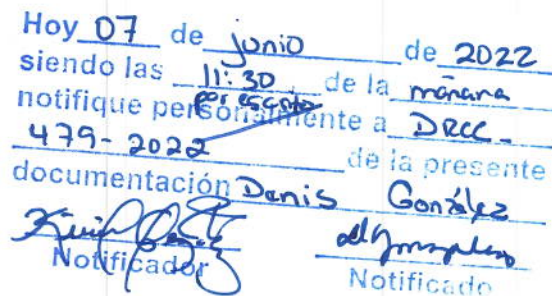 Hoy 07 de junio de 2022
siendo las 11:30 de la mañana
por escrito
notifique personalmente a DRCC-
479-2022 de la presente
documentación Danis González
Notificador Notificado